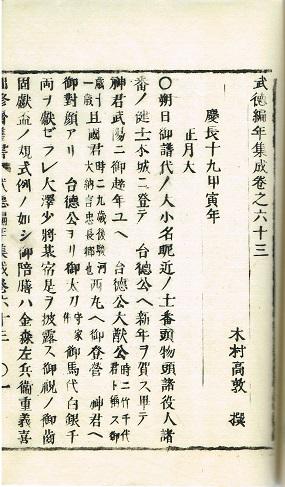 武德編年集成卷之六十三
木村高敦 撰
慶長十九甲寅年
正月大
〇朔日御譜代ノ大小名昵近ノ士番頭物頭諸役人諸
番ノ健士本城ニ登テ 台德公ヘ新年ヲ賀ス畢テ
神君武陽ニ御越年ユヘ 台德公大猷公時ニ竹千代君ト稱ス御
歲十一歲 且國君時ニ九歲後駿河大納言忠長卿也 西丸ヘ御登營 神君ヘ
御對顏アリ 台德公ヨリ御太刀守家 御馬代白銀千
兩ヲ獻ゼラレ大澤少將基宿是ヲ披露ス御祝ノ御齒
固獻盃ノ規式例ノ如シ御陪膳ハ金森左兵衞重義喜